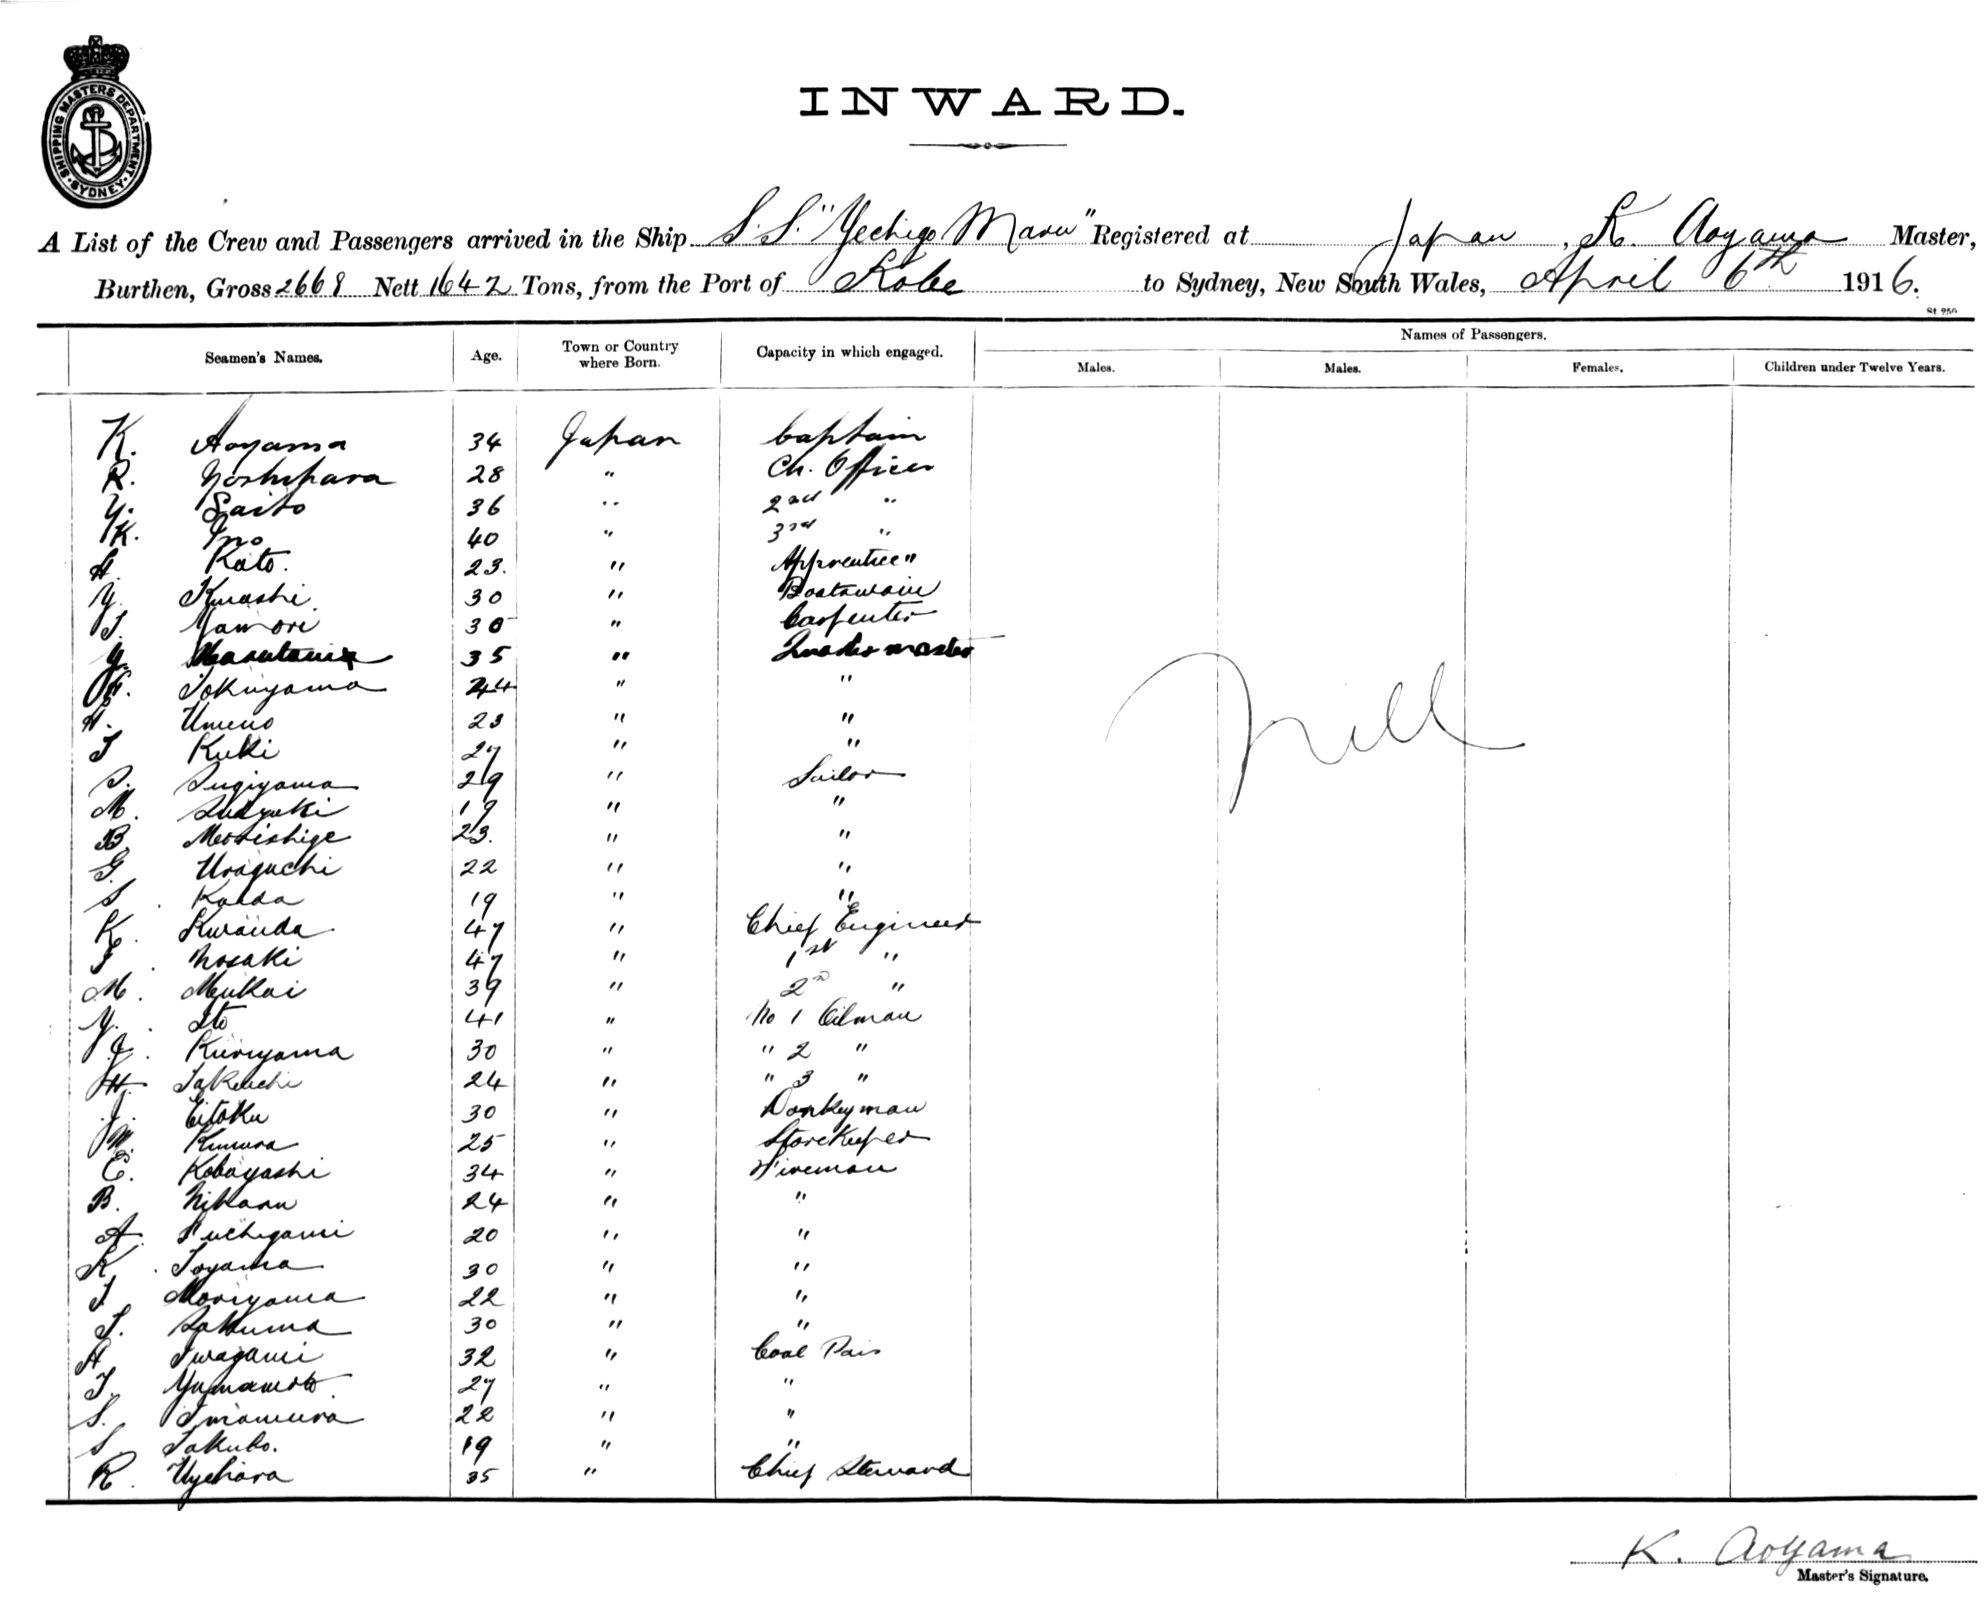 SHIPPING MASTERS DEPARTMENT
SYDNEY
INWARD.
A List of the Crew and Passengers arrived in the Ship S.S. "Yechigo Maru" Registered at Japan, K. Aoyama Master,
Burthen, Gross 2668 Nett 1642 Tons, from the Port of Kobe to Sydney, New South Wales, April 6th 1916.
St 950
Seamen's Names. Age. Town or Country where Born. Capacity in which engaged. Names of Passengers.
Males. Males. Females. Children under Twelve Years.
K. Aoyama 34 Japan Captain
R. Yoshihara 28 " Ch. Officer
Y. Saito 36 " 2nd "
K. Ino 40 " 3rd "
H. Kato. 23. " Apprentice "
Y. Kurashi 30 " Boatswain
T. Yamori 30 " Carpenter
Y. Masutani 35 " Quarter master
Tokuyama 44 " "
H. Umeno 23 " "
T Kuki 27 " "
S. Sugiyama 29 " Sailor
M. Sudzuki 19 " "
B. Morishige 23. " "
G. Uraguchi 22 " "
S. Kaada 19 " "
K. Kurauda 47 " Chief Engineer
T. Nosaki 47 " 1st "
M. Mukai 39 " 2n "
Y. Ito 41 " No 1 Oilman
J. Kuriyama 30 " " 2 "
H. Takeuchi 24 " " 3 "
J. Eitoku 30 " Donkeyman
M. Kimura 25 " Storekeeper
E. Kobayashi 34 " Fireman
B. Niharu 24 " "
A. Fuchigami 20 " "
K. Toyama 30 " "
T Moriyama 22 " "
S. Sakuma 30 " "
A Iwagami 32 " Coal Pass
T. Yamamoto 27 " "
S. Imamura 22 " "
S. Takubo. 19 " "
R. Uyehara 35 " Chief Steward
Nill
K. Aoyama
Master's Signature.